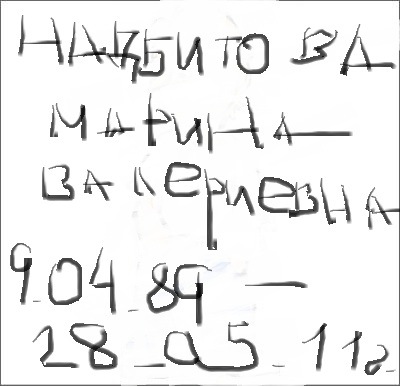 НАДБИТОВА
МАРИНА
ВАЛЕРИЕВНА
9.04.89 —
28.05.11г.